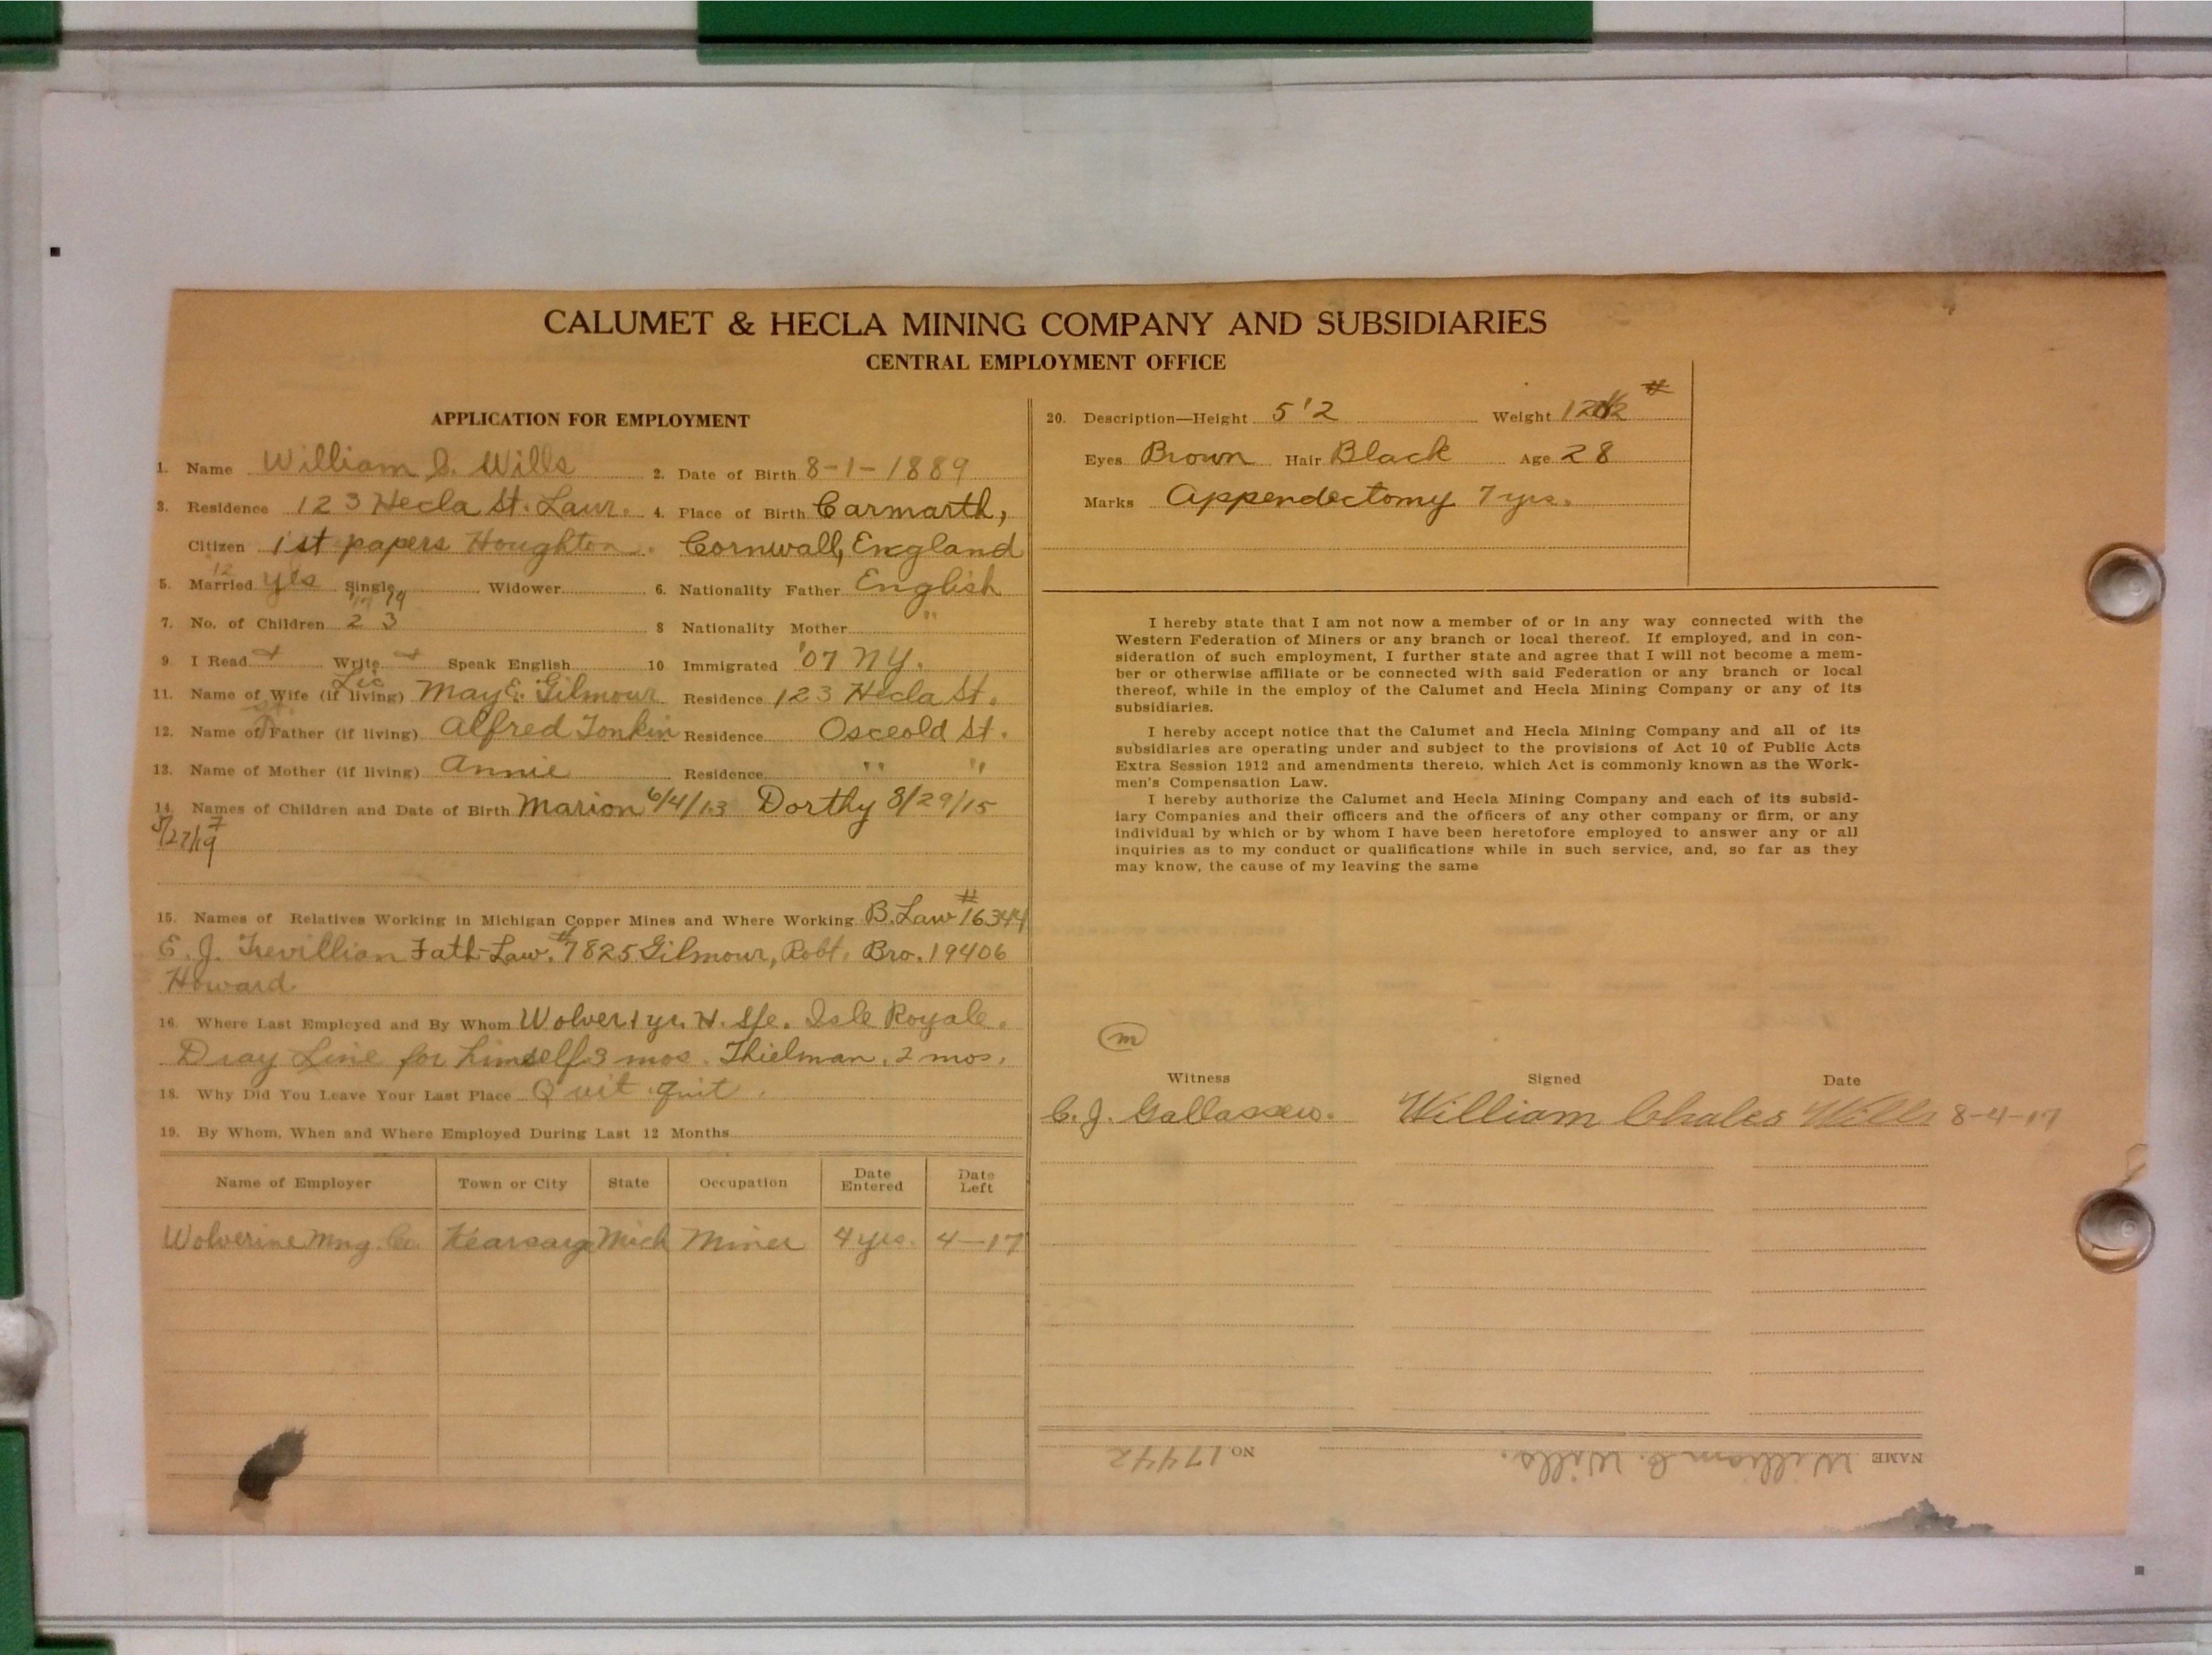 CALUMET & HECLA MINING COMPANY AND SUBSIDIARIES
CENTRAL EMPLOYMENT OFFICE
APPLICATION FOR EMPLOYMENT
1. Name William C. Wills 2. Date of Birth 8-1-1889
3. Residence 123 Hecla St. Laur. 4. Place of Birth Carmarth,
Citizen 1st papers Houghton. Cornwall, England
12
5. Married yes Single Widower 6. Nationality Father English
17 19
7. No. of Children 2 3 8 Nationality Mother " "
9. I Read Write Speak English 10 Immigrated '07 NY.
11. Name of Wife (if living) May E. Gilmour Residence 123 Hecla St.
12. Name of Father (if living) Alfred Tonkin Residence Osceold St.
13. Name of Mother (if living) Annie Residence " "
14. Names of Children and Date of Birth Marion 6/4/13 Dorthy 8/29/15
15. Names of Relatives Working in Michigan Copper Mines and Where Working B. Law #16344
E. J. Trevillian Fath-Law. #7825 Gilmour, Robt. Bro. 19406
Howard
16. Where Last Employed and By Whom Wolver 1 yr. H. Isle Royale.
Dray Line for himself 3 mos. Thielman. 2 mos.
18. Why Did You Leave Your Last Place Quit quit.
19. By Whom, When and Where Employed During Last 12 Months
Name of Employer Town or City State Occupation Date Entered Date Left
Wolverine Mng. Co. Kearsarg Mich Miner 4 yrs. 4-17
20. Description—Height 5'2 Weight #
Eyes Brown Hair Black Age 28
Marks Appendectomy 7 yrs.
I hereby state that I am not now a member of or in any way connected with the
Western Federation of Miners or any branch or local thereof. If employed, and in con-
sideration of such employment, I further state and agree that I will not become a mem-
ber or otherwise affiliate or be connected with said Federation or any branch or local
thereof, while in the employ of the Calumet and Hecla Mining Company or any of its
subsidiaries.
I hereby accept notice that the Calumet and Hecla Mining Company and all of its
subsidiaries are operating under and subject to the provisions of Act 10 of Public Acts
Extra Session 1912 and amendments thereto, which Act is commonly known as the Work-
men's Compensation Law.
I hereby authorize the Calumet and Hecla Mining Company and each of its subsid-
iary Companies and their officers and the officers of any other company or firm, or any
individual by which or by whom I have been heretofore employed to answer any or all
inquiries as to my conduct or qualifications while in such service, and, so far as they
may know, the cause of my leaving the same
m
Witness Signed Date
C. J. William Chales Wills 8-4-17
NAME William C. Wills. NO 17442